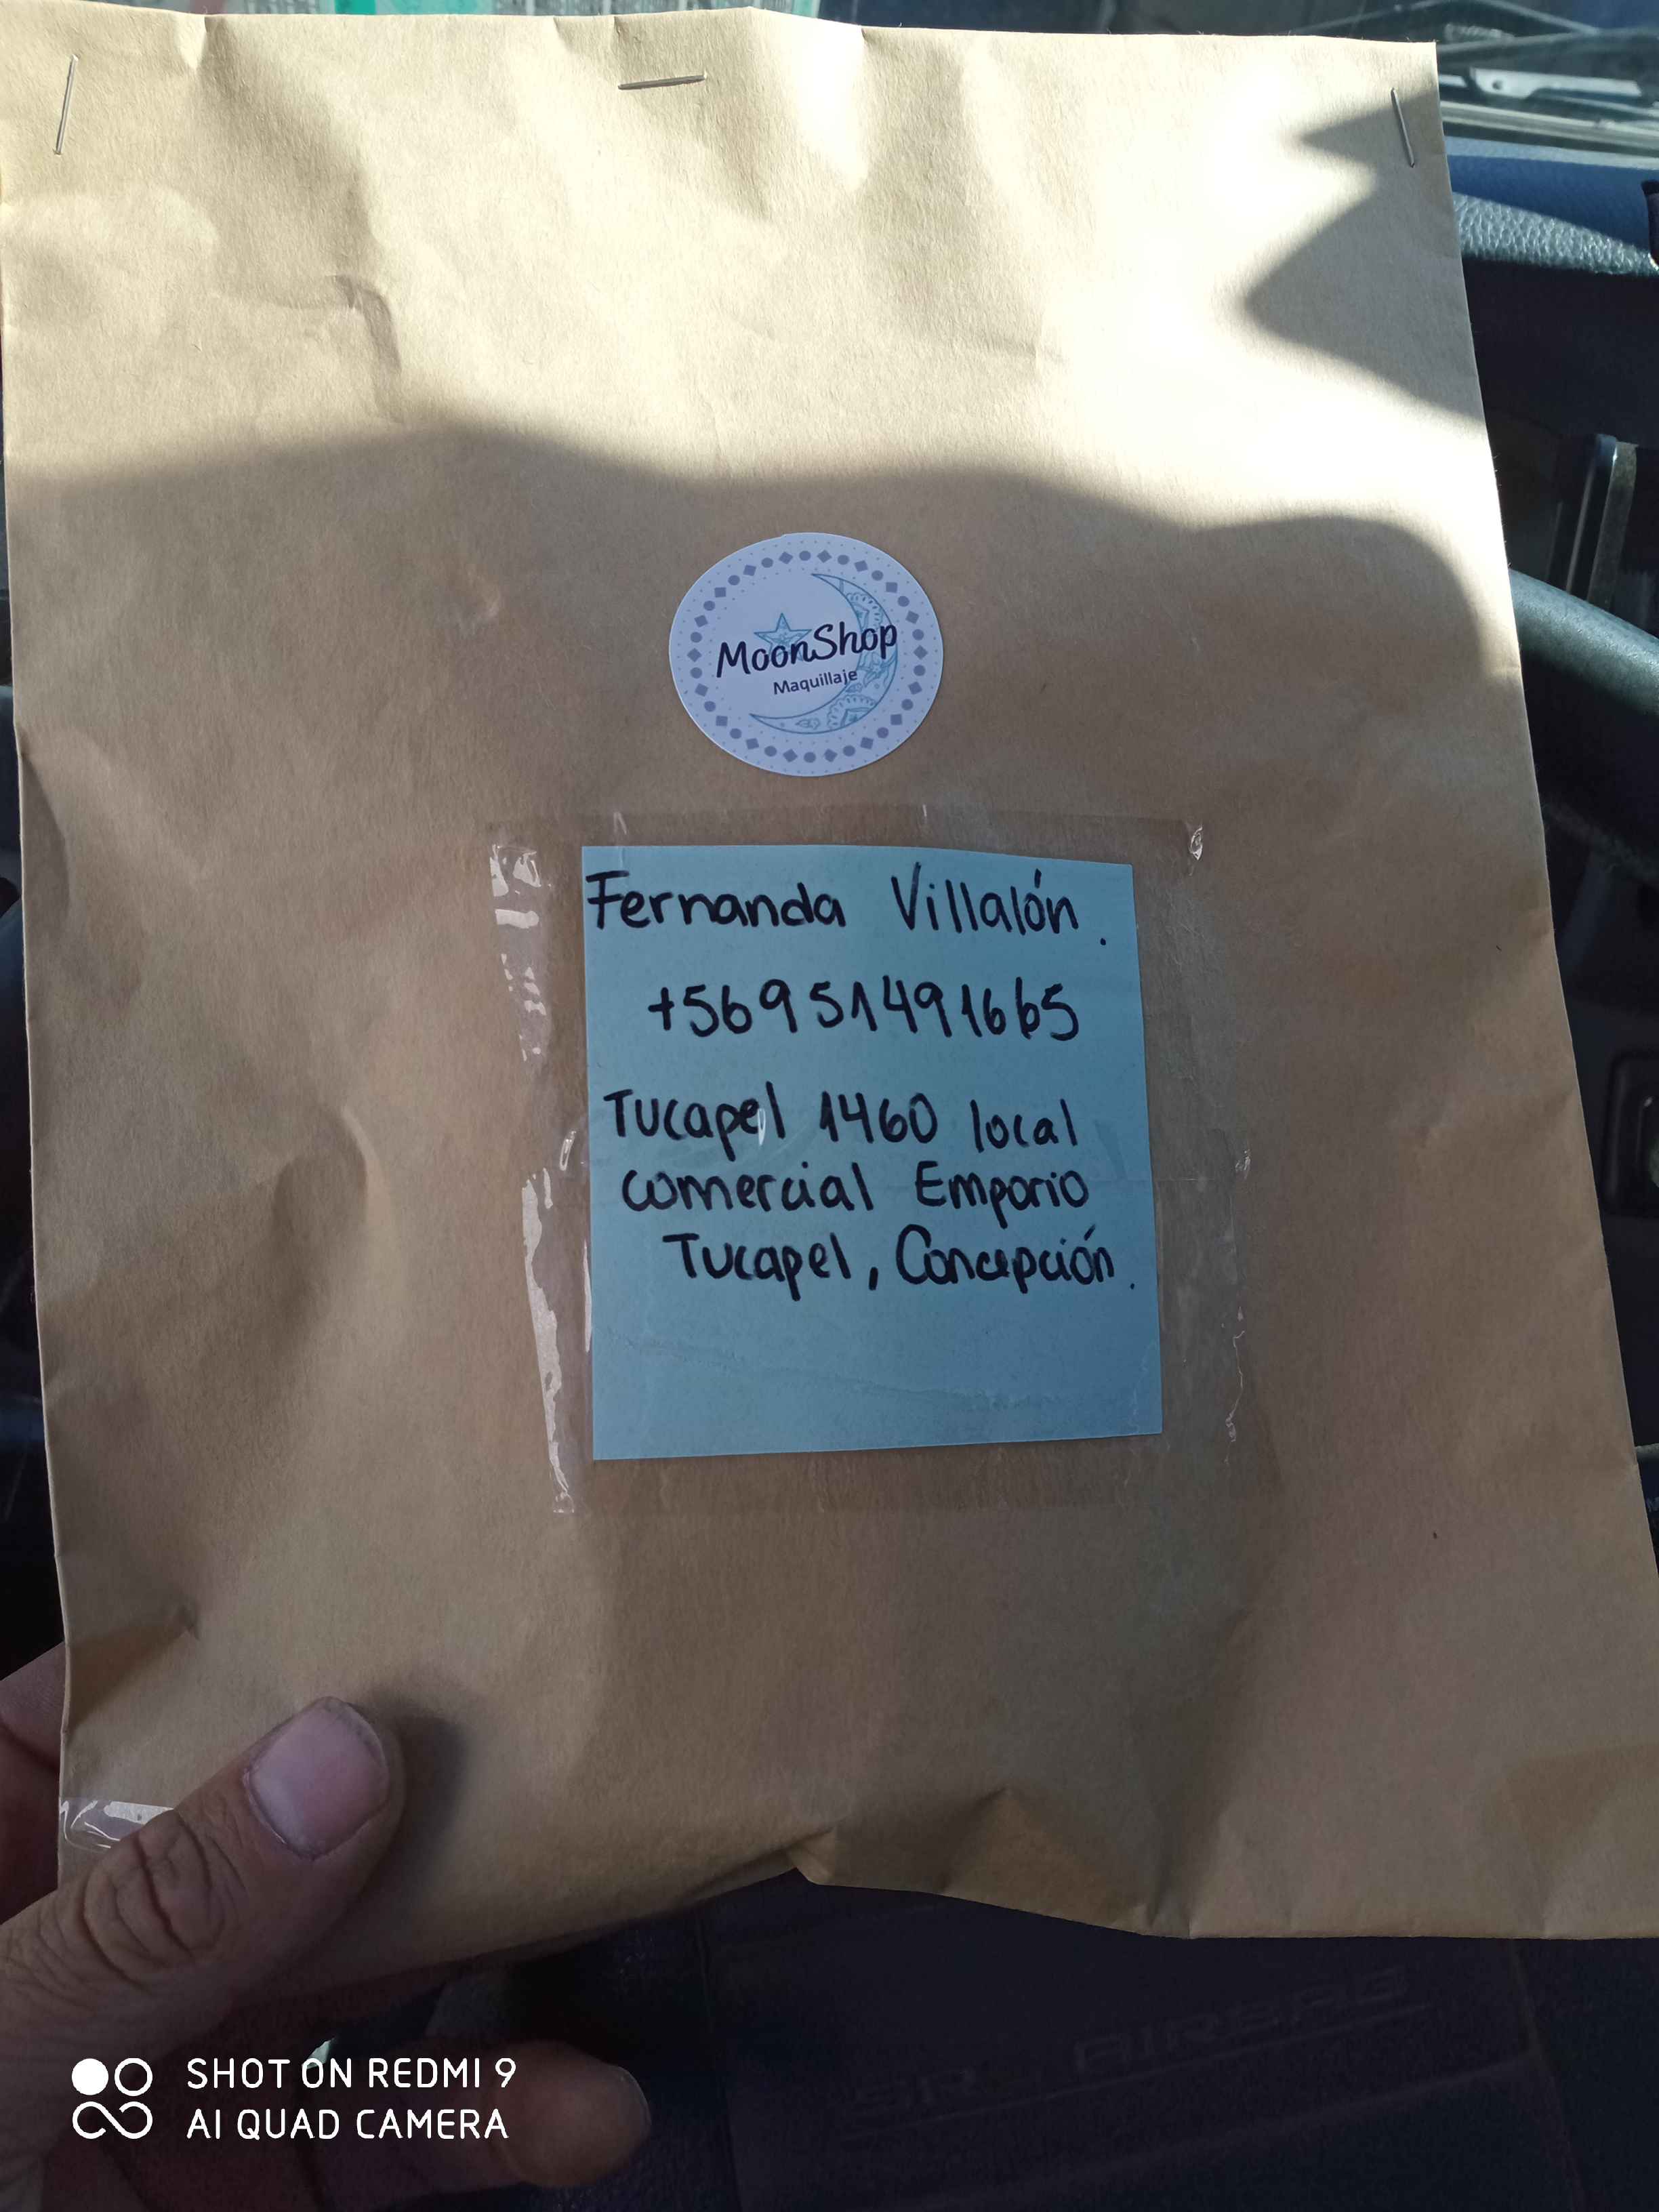 MoonShop
Maquillaje
Fernanda Villalón.
+56951491665
Tucapel 1460 local
comercial Emporio
Tucapel, Concepción.
AIRBAG
SHOT ON REDMI 9
AI QUAD CAMERA